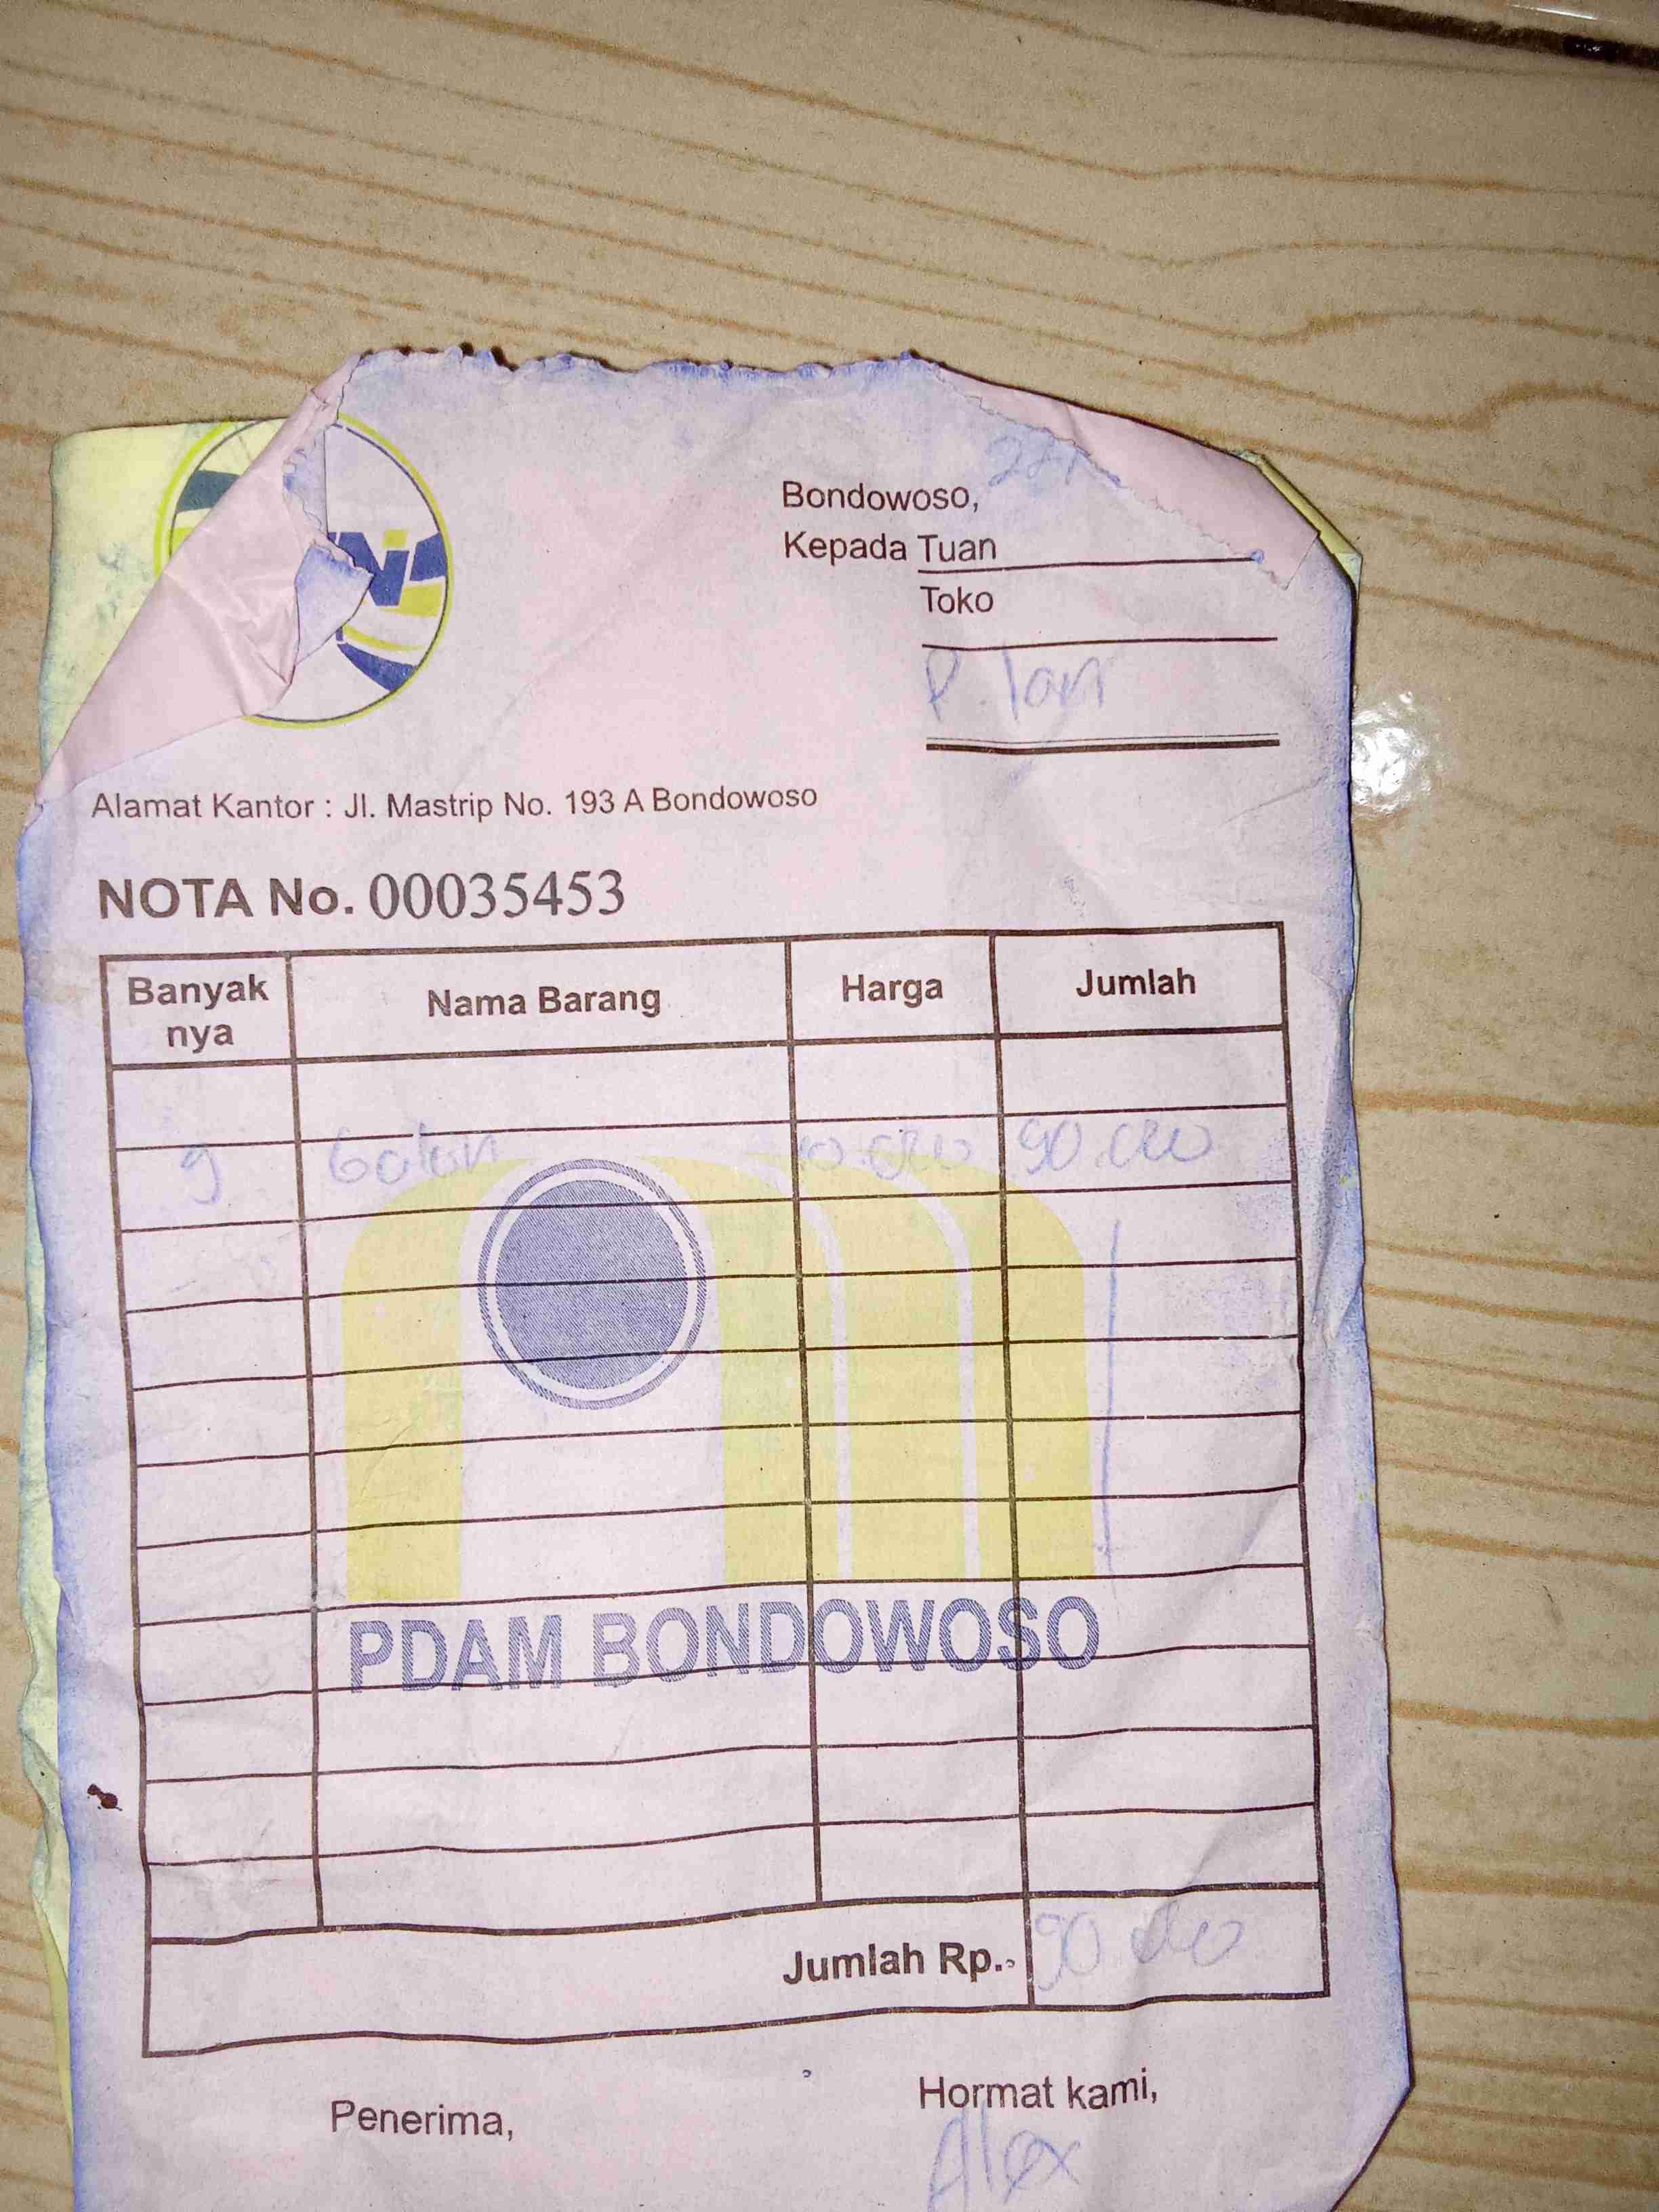 Bondowoso,
Kepada Tuan
Toko
Alamat Kantor : Jl. Mastrip No. 193 A Bondowoso
NOTA No. 00035453
Banyak nya Nama Barang Harga Jumlah
9 Galon 10.000 90.000
PDAM BONDOWOSO
Jumlah Rp. 90.000
Penerima, Hormat kami,
Alex